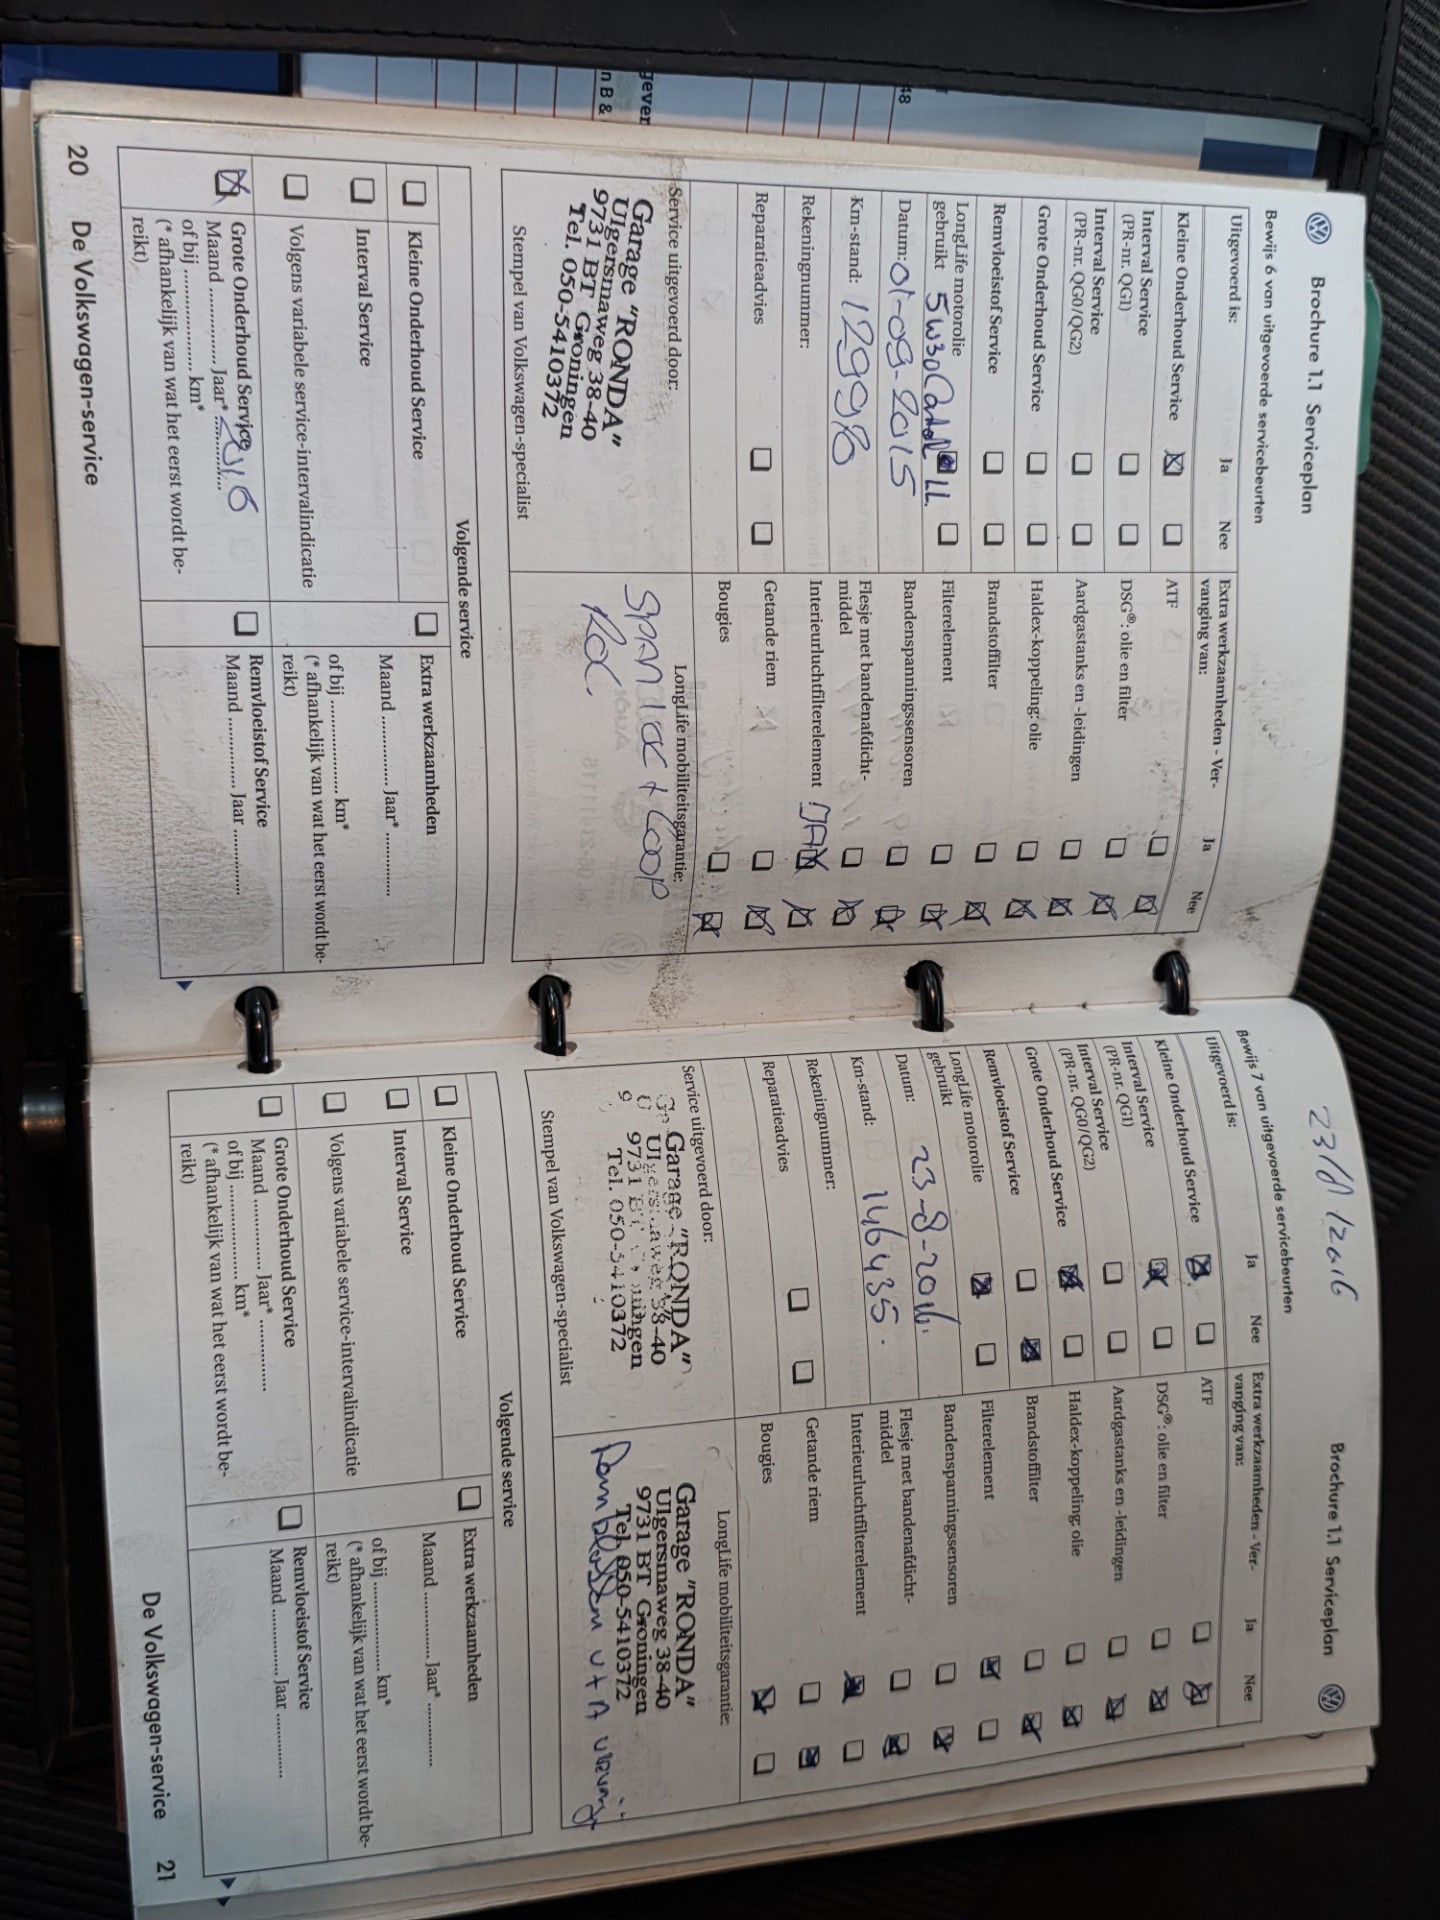 Brochure 1.1 Serviceplan
Bewijs 6 van uitgevoerde servicebeurten
Uitgevoerd is: Ja Nee
Kleine Onderhoud Service
Interval Service
(PR-nr. QG1)
Interval Service
(PR-nr. QG0/QG2)
Grote Onderhoud Service
Remvloeistof Service
LongLife motorolie
gebruikt 5W30
Datum: 01-09-2015
Km-stand: 129978
Rekeningnummer:
Reparatieadvies
Extra werkzaamheden - Ver-
vanging van: Ja Nee
ATF
DSG®: olie en filter
Aardgastanks en -leidingen
Haldex-koppeling: olie
Brandstoffilter
Filterelement
Bandenspanningssensoren
Flesje met bandenafdicht-
middel
Interieurluchtfilterelement
Getande riem
Bougies
Service uitgevoerd door:
Garage "RONDA"
Ulgersmaweg 38-40
9731 BT Groningen
Tel. 050-5410372
Stempel van Volkswagen-specialist
LongLife mobiliteitsgarantie:
Volgende service
Kleine Onderhoud Service
Interval Service
Volgens variabele service-intervalindicatie
Grote Onderhoud Service
Maand ............... Jaar* 2016
of bij .................. km*
(* afhankelijk van wat het eerst wordt be-
reikt)
Extra werkzaamheden
Maand ............... Jaar* ...............
of bij .................. km*
(* afhankelijk van wat het eerst wordt be-
reikt)
Remvloeistof Service
Maand ............... Jaar ...............
20 De Volkswagen-service
48
gever
n B &
23/8/2016
Brochure 1.1 Serviceplan
Bewijs 7 van uitgevoerde servicebeurten
Uitgevoerd is: Ja Nee
Kleine Onderhoud Service
Interval Service
(PR-nr. QG1)
Interval Service
(PR-nr. QG0/QG2)
Grote Onderhoud Service
Remvloeistof Service
LongLife motorolie
gebruikt
Datum: 23-8-2016.
Km-stand: 146435.
Rekeningnummer:
Reparatieadvies
Extra werkzaamheden - Ver-
vanging van: Ja Nee
ATF
DSG®: olie en filter
Aardgastanks en -leidingen
Haldex-koppeling: olie
Brandstoffilter
Filterelement
Bandenspanningssensoren
Flesje met bandenafdicht-
middel
Interieurluchtfilterelement
Getande riem
Bougies
Service uitgevoerd door:
Garage "RONDA"
Ulgersmaweg 38-40
9731 BT Groningen
Tel. 050-5410372
Stempel van Volkswagen-specialist
LongLife mobiliteitsgarantie:
Garage "RONDA"
Ulgersmaweg 38-40
9731 BT Groningen
Tel. 050-5410372
Volgende service
Kleine Onderhoud Service
Interval Service
Volgens variabele service-intervalindicatie
Grote Onderhoud Service
Maand ............... Jaar* ...............
of bij .................. km*
(* afhankelijk van wat het eerst wordt be-
reikt)
Extra werkzaamheden
Maand ............... Jaar* ...............
of bij .................. km*
(* afhankelijk van wat het eerst wordt be-
reikt)
Remvloeistof Service
Maand ............... Jaar ...............
De Volkswagen-service 21